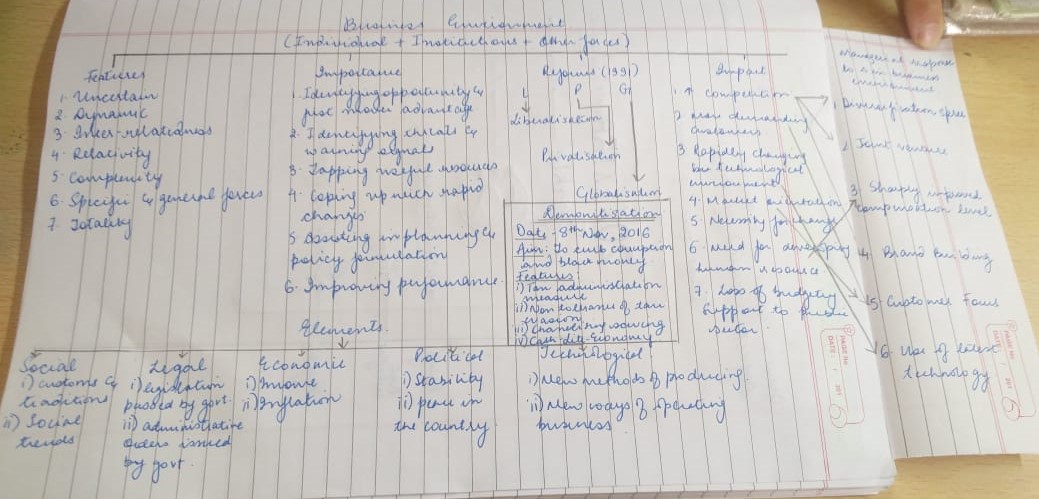 Business Environment
(Individual + Institutions + Other forces)
Features
1. Uncertain
2. Dynamic
3. Inter-relatedness
4. Relativity
5. Complexity
6. Specific & general forces
7. Totality
Importance
1. Identifying opportunity &
first mover advantage
2. Identifying threats &
warning signals
3. Tapping useful resources
4. Coping up with rapid
changes
5. Assisting in planning &
policy formulation
6. Improving performance.
Reforms (1991)
L P G
Liberalisation
Privatisation
Globalisation
Demonitisation
Date - 8th Nov, 2016
Aim: To curb corruption
and black money.
Features:
i) Tax administration
measure
ii) Non tolerance of tax
evasion
iii) Channelising saving
iv) Cash-lite-economy
Impact
1. ↑ competition
2. More demanding
customers
3. Rapidly changing
technological
environment
4. Market orientation
5. Necessity for change
6. Need for developing
human resource.
7. Loss of budgetary
support to
sector.
Managerial response
to
business
environment
1. Diversification spree
2. Joint venture
3. Sharply improved
compensation level
4. Brand Building
5. Customer Focus
6. Use of latest
technology
Elements
Social
i) customs &
traditions
ii) Social
trends
Legal
i) legislation
passed by govt.
ii) administrative
orders issued
by govt.
Economic
i) Income
ii) Inflation
Political
i) Stability
ii) peace in
the country
Technological
i) New methods of producing.
ii) New ways of operating
business.
PAGE No
DATE: